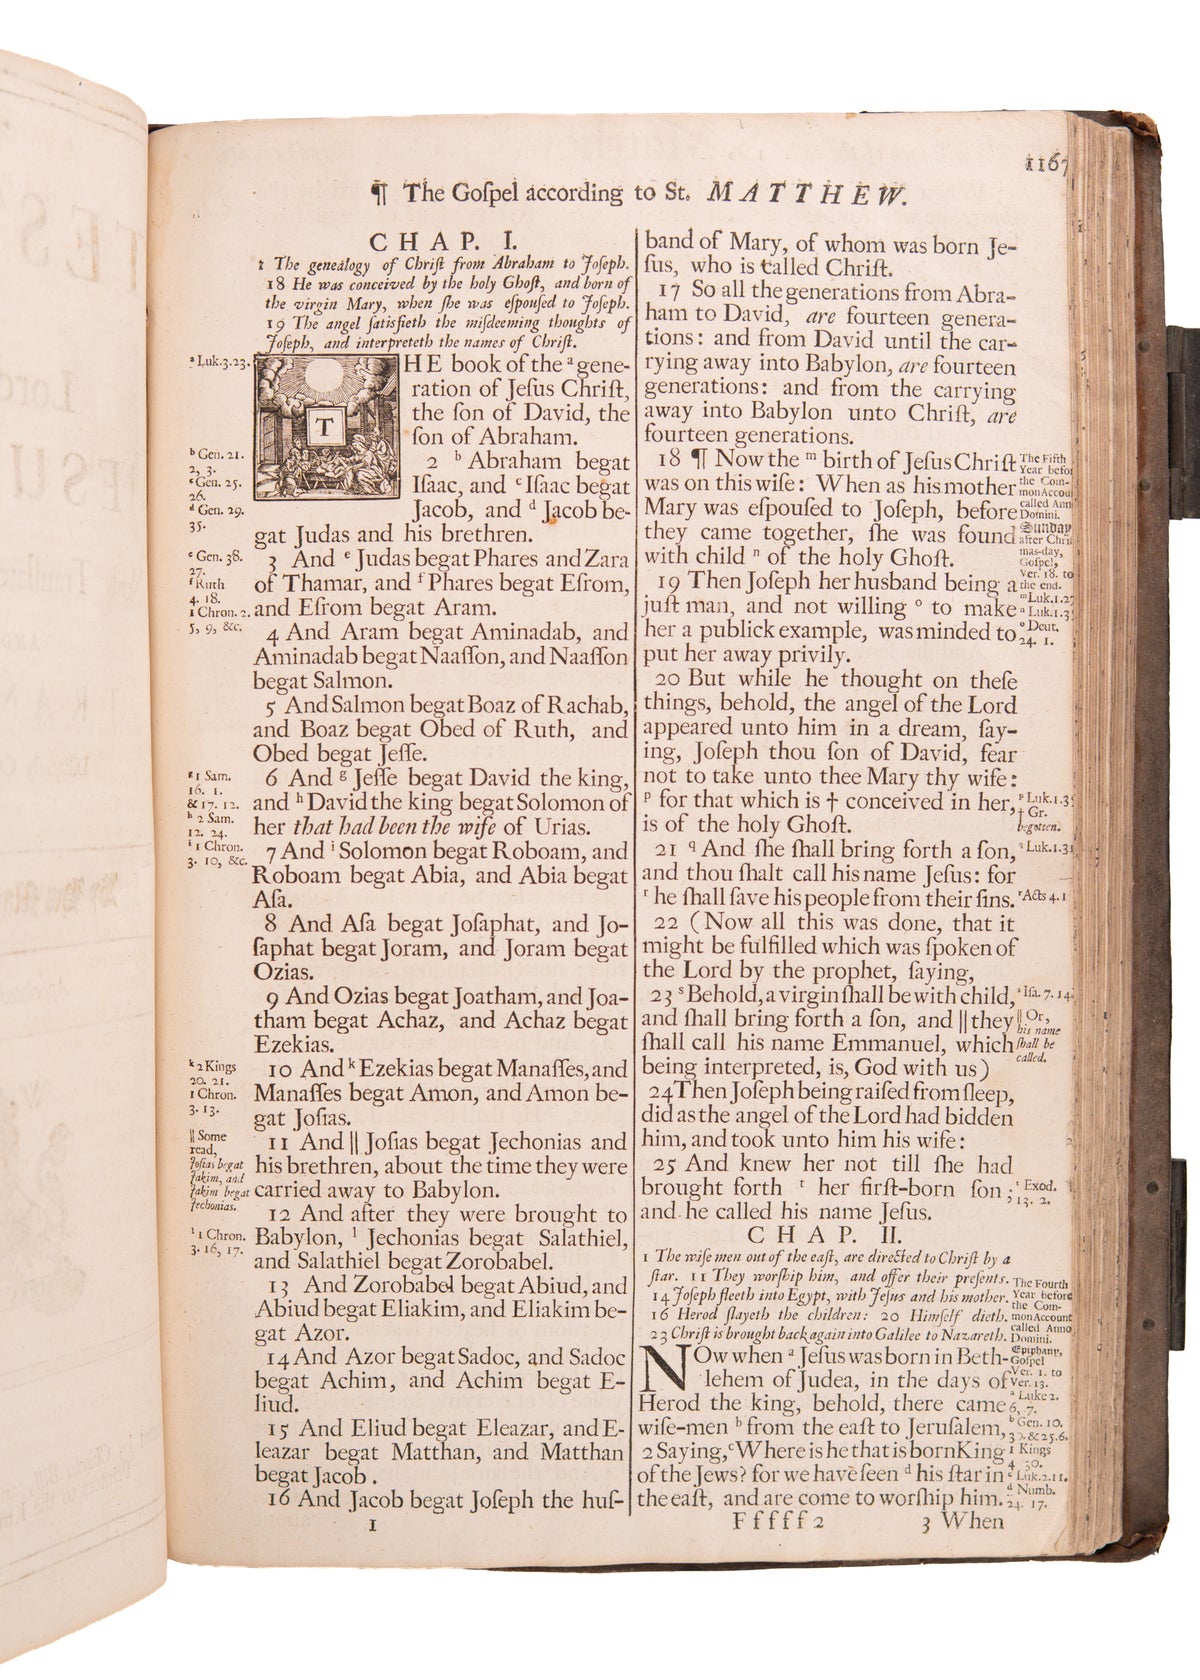 1167
¶ The Goſpel according to St. MATTHEW.
CHAP. I.
1 The genealogy of Chriſt from Abraham to Joſeph.
18 He was conceived by the holy Ghoſt, and born of
the virgin Mary, when ſhe was eſpouſed to Joſeph.
19 The angel ſatisfieth the miſdeeming thoughts of
Joſeph, and interpreteth the names of Chriſt.
THE book of the ᵃ gene-
ration of Jeſus Chriſt,
the ſon of David, the
ſon of Abraham.
2 ᵇ Abraham begat
Iſaac, and ᶜ Iſaac begat
Jacob, and ᵈ Jacob be-
gat Judas and his brethren.
3 And ᵉ Judas begat Phares and Zara
of Thamar, and ᶠ Phares begat Eſrom,
and Eſrom begat Aram.
4 And Aram begat Aminadab, and
Aminadab begat Naaſſon, and Naaſſon
begat Salmon.
5 And Salmon begat Boaz of Rachab,
and Boaz begat Obed of Ruth, and
Obed begat Jeſſe.
6 And ᵍ Jeſſe begat David the king,
and ʰ David the king begat Solomon of
her that had been the wife of Urias.
7 And ⁱ Solomon begat Roboam, and
Roboam begat Abia, and Abia begat
Aſa.
8 And Aſa begat Joſaphat, and Jo-
ſaphat begat Joram, and Joram begat
Ozias.
9 And Ozias begat Joatham, and Joa-
tham begat Achaz, and Achaz begat
Ezekias.
10 And ᵏ Ezekias begat Manaſſes, and
Manaſſes begat Amon, and Amon be-
gat Joſias.
11 And || Joſias begat Jechonias and
his brethren, about the time they were
carried away to Babylon.
12 And after they were brought to
Babylon, ˡ Jechonias begat Salathiel,
and Salathiel begat Zorobabel.
13 And Zorobabel begat Abiud, and
Abiud begat Eliakim, and Eliakim be-
gat Azor.
14 And Azor begat Sadoc, and Sadoc
begat Achim, and Achim begat E-
liud.
15 And Eliud begat Eleazar, and E-
leazar begat Matthan, and Matthan
begat Jacob.
16 And Jacob begat Joſeph the huſ-
1
ᵃ Luk.3.23.
ᵇ Gen. 21.
2, 3.
ᶜ Gen. 25.
26.
ᵈ Gen. 29.
35.
ᵉ Gen. 38.
27.
ᶠ Ruth
4. 18.
1 Chron. 2.
5, 9, &c.
ᵍ 1 Sam.
16. 1.
& 17. 12.
ʰ 2 Sam.
12. 24.
ⁱ 1 Chron.
3. 10, &c.
ᵏ 2 Kings
20. 21.
1 Chron.
3. 13.
|| Some
read,
Joſias begat
Jakim, and
Jakim begat
Jechonias.
ˡ 1 Chron.
3. 16, 17.
band of Mary, of whom was born Je-
ſus, who is called Chriſt.
17 So all the generations from Abra-
ham to David, are fourteen genera-
tions: and from David until the car-
rying away into Babylon, are fourteen
generations: and from the carrying
away into Babylon unto Chriſt, are
fourteen generations.
18 ¶ Now the ᵐ birth of Jeſus Chriſt
was on this wiſe: When as his mother
Mary was eſpouſed to Joſeph, before
they came together, ſhe was found
with child ⁿ of the holy Ghoſt.
19 Then Joſeph her husband being a
juſt man, and not willing ᵒ to make
her a publick example, was minded to
put her away privily.
20 But while he thought on theſe
things, behold, the angel of the Lord
appeared unto him in a dream, ſay-
ing, Joſeph thou ſon of David, fear
not to take unto thee Mary thy wife:
ᵖ for that which is † conceived in her,
is of the holy Ghoſt.
21 ᑫ And ſhe ſhall bring forth a ſon,
and thou ſhalt call his name Jeſus: for
ʳ he ſhall ſave his people from their ſins.
22 (Now all this was done, that it
might be fulfilled which was ſpoken of
the Lord by the prophet, ſaying,
23 ˢ Behold, a virgin ſhall be with child,
and ſhall bring forth a ſon, and || they
ſhall call his name Emmanuel, which
being interpreted, is, God with us)
24 Then Joſeph being raiſed from ſleep,
did as the angel of the Lord had bidden
him, and took unto him his wife:
25 And knew her not till ſhe had
brought forth ᵗ her firſt-born ſon;
and he called his name Jeſus.
CHAP. II.
1 The wiſe men out of the eaſt, are directed to Chriſt by a
ſtar. 11 They worſhip him, and offer their preſents.
14 Joſeph fleeth into Egypt, with Jeſus and his mother.
16 Herod ſlayeth the children: 20 Himſelf dieth.
23 Chriſt is brought back again into Galilee to Nazareth.
NOw when ᵃ Jeſus was born in Beth-
lehem of Judea, in the days of
Herod the king, behold, there came
wiſe-men ᵇ from the eaſt to Jeruſalem,
2 Saying, ᶜ Where is he that is born King
of the Jews? for we have ſeen ᵈ his ſtar in
the eaſt, and are come to worſhip him.
Fffff2 3 When
The Fifth
Year befor
the Com-
mon Accou
called Ann
Domini.
Sunday
after Chriſ
mas-day,
Goſpel,
Ver. 18. to
the end.
ᵐ Luk.1.27
ⁿ Luk.1.35
ᵒ Deut.
24. 1.
ᵖ Luk.1.35
† Gr.
begotten.
ᑫ Luk.1.31
ʳ Acts 4. 1
ˢ Iſa. 7. 14.
|| Or,
his name
ſhall be
called.
ᵗ Exod.
13. 2.
The Fourth
Year before
the Com-
mon Account
called Anno
Domini.
Epiphany,
Goſpel
Ver. 1. to
Ver. 13.
ᵃ Luke 2.
6, 7.
ᵇ Gen. 10.
& 25.6.
1 Kings
4. 30.
ᶜ Luk.2.11.
ᵈ Numb.
24. 17.